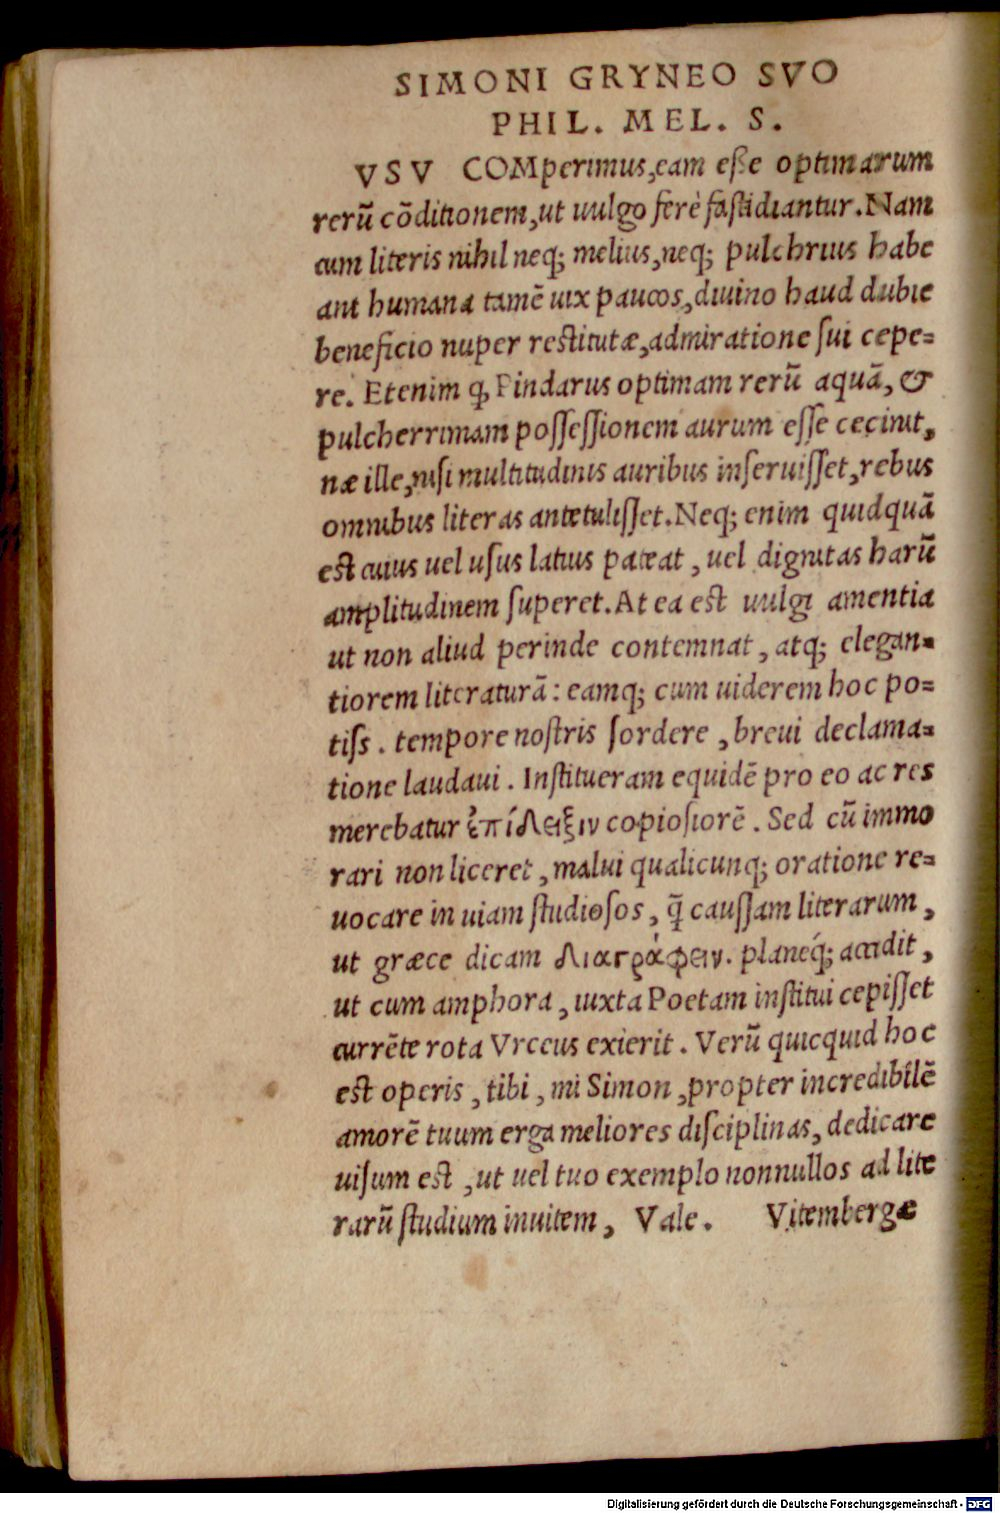 SIMONI GRYNEO SVO
PHIL. MEL. S.
VSV COMperimus, eam eſſe optimarum
rerū cōditionem, ut uulgo ferè faſtidiantur. Nam
cum literis nihil neq; melius, neq; pulchrius habe
ant humana tamē uix paucos, diuino haud dubie
beneficio nuper reſtitutæ, admiratione ſui cepe=
re. Etenim ꝙ Pindarus optimam rerū aquā, &
pulcherrimam poſſeſſionem aurum eſſe cecinit,
næ ille, niſi multitudinis auribus inſeruiſſet, rebus
omnibus literas antetuliſſet. Neq; enim quidquā
eſt cuius uel uſus latius pateat, uel dignitas harū
amplitudinem ſuperet. At ea eſt uulgi amentia
ut non aliud perinde contemnat, atq; elegan=
tiorem literaturā: eamq; cum uiderem hoc po=
tiſs. tempore noſtris ſordere, breui declama=
tione laudaui. Inſtitueram equidē pro eo ac res
merebatur ἐπίδειξιν copioſiorē. Sed cū immo
rari non liceret, malui qualicunq; oratione re=
uocare in uiam ſtudioſos, q̃ cauſſam literarum,
ut græce dicam διαγράφειν. planeq́; accidit,
ut cum amphora, iuxta Poetam inſtitui cepiſſet
currēte rota Vrceus exierit. Verū quicquid hoc
eſt operis, tibi, mi Simon, propter incredibilē
amorē tuum erga meliores diſciplinas, dedicare
uiſum eſt, ut uel tuo exemplo nonnullos ad lite
rarū ſtudium inuitem, Vale. Vitembergæ
Digitalisierung gefördert durch die Deutsche Forschungsgemeinschaft - DFG